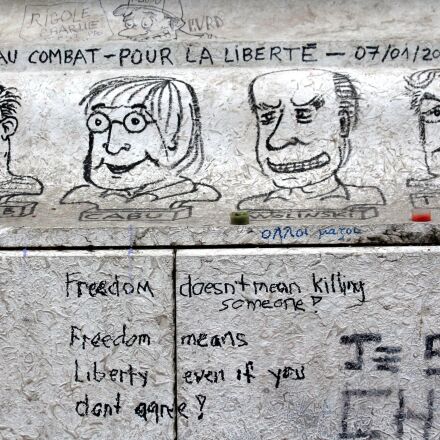 RIGOLE
CHARLIE
AU COMBAT - POUR LA LIBERTÉ - 07/01/20
CABU
WOLINSKI
Freedom doesn't mean killing
someone!
Freedom means
Liberty even if you
dont agree!
JE S
CH